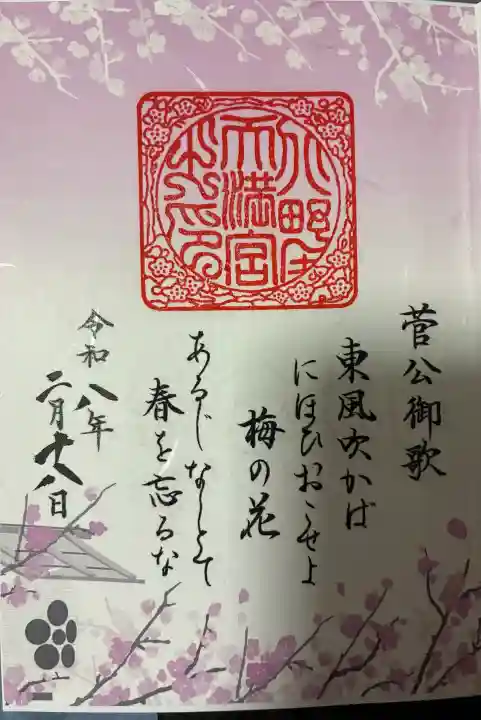 菅公御歌
東風吹かば
にほひおこせよ
梅の花
あるじなしとて
春を忘るな
令和八年
二月十八日
天満宮